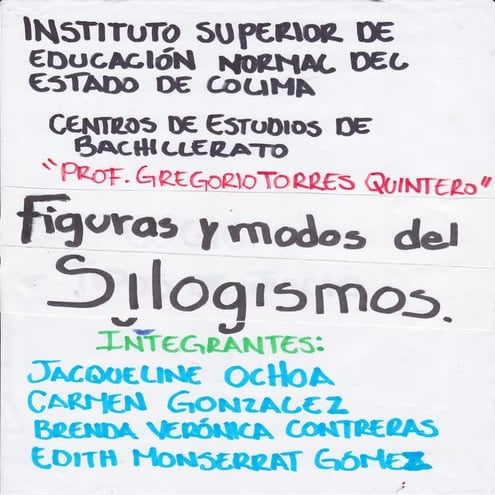 INSTITUTO SUPERIOR DE
EDUCACIÓN NORMAL DEL
ESTADO DE COLIMA
CENTROS DE ESTUDIOS DE
BACHILLERATO
"PROF. GREGORIO TORRES QUINTERO"
Figuras y modos del
Silogismos.
INTEGRANTES:
JACQUELINE OCHOA
CARMEN GONZALEZ
BRENDA VERÓNICA CONTRERAS
EDITH MONSERRAT GÓMEZ